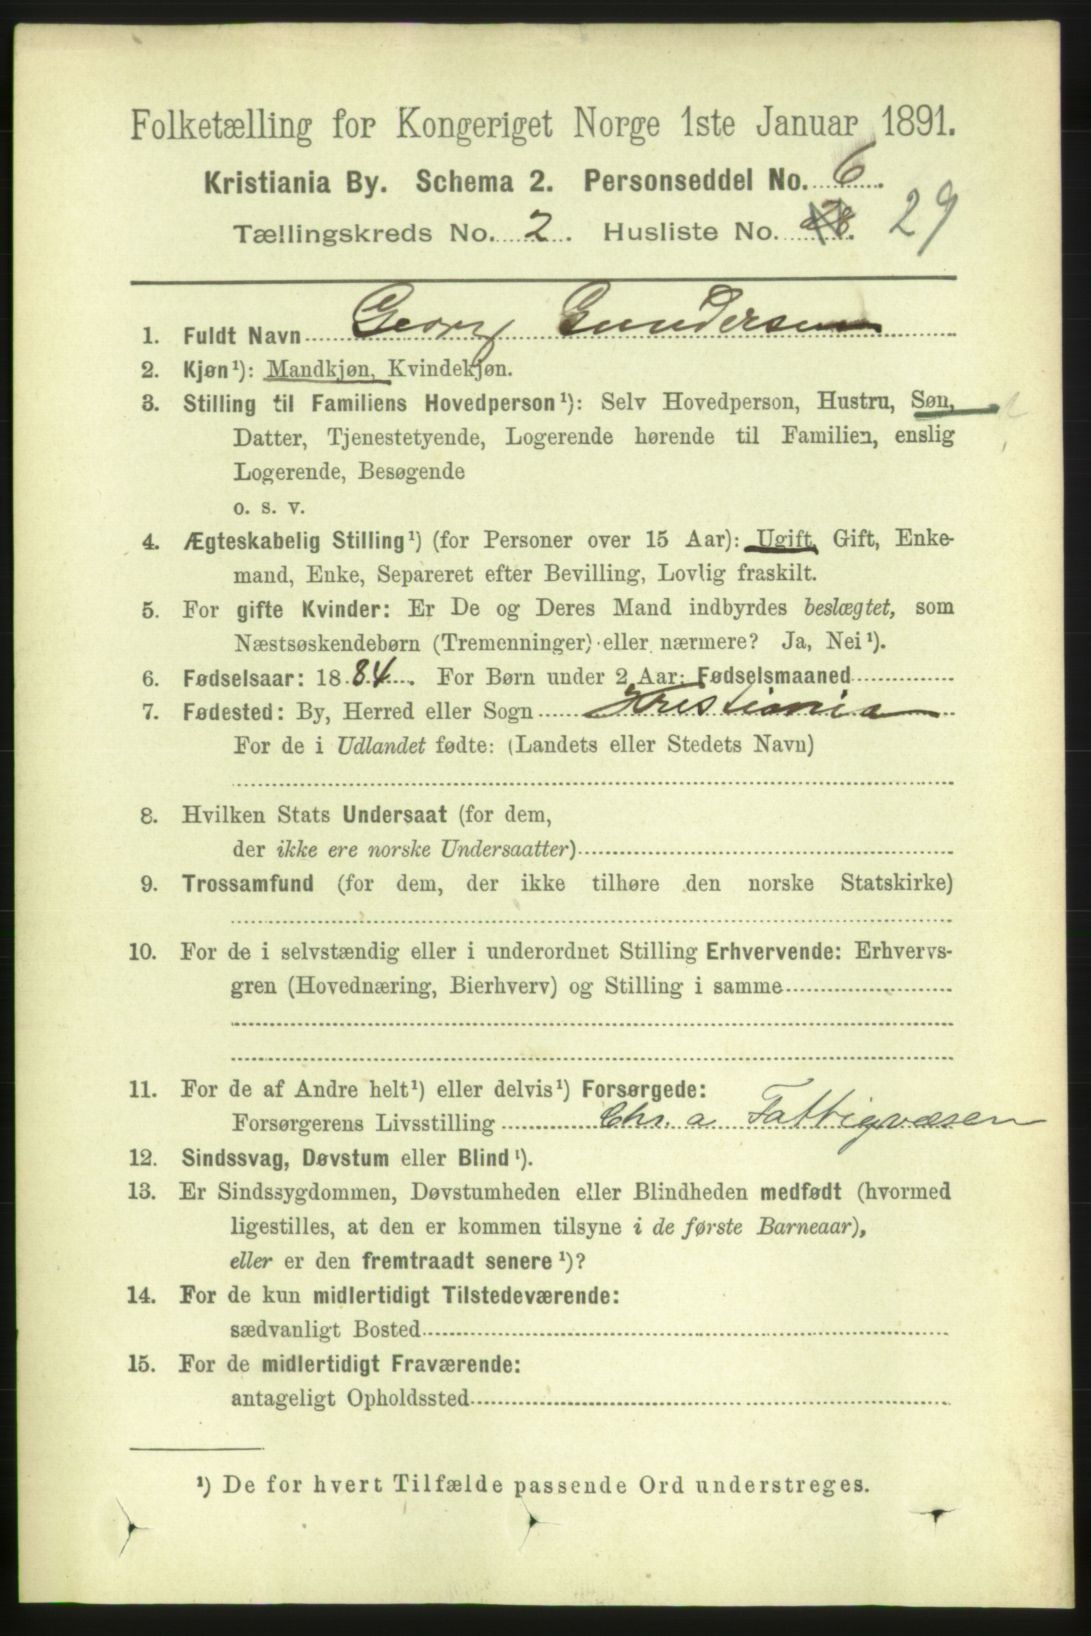 Folketælling for Kongeriget Norge 1ste Januar 1891.
Kristiania By. Schema 2. Personseddel No. 6.
Tællingskreds No. 2. Husliste No. 28. 29
1. Fuldt Navn Georg Gundersen
2. Kjøn¹): Mandkjøn, Kvindekjøn.
3. Stilling til Familiens Hovedperson¹): Selv Hovedperson, Hustru, Søn,
Datter, Tjenestetyende, Logerende hørende til Familien, enslig
Logerende, Besøgende
o. s. v.
4. Ægteskabelig Stilling¹) (for Personer over 15 Aar): Ugift, Gift, Enke-
mand, Enke, Separeret efter Bevilling, Lovlig fraskilt.
5. For gifte Kvinder: Er De og Deres Mand indbyrdes beslægtet, som
Næstsøskendebørn (Tremenninger) eller nærmere? Ja, Nei¹).
6. Fødselsaar: 1884. For Børn under 2 Aar: Fødselsmaaned
7. Fødested: By, Herred eller Sogn Kristiania
For de i Udlandet fødte: (Landets eller Stedets Navn)
8. Hvilken Stats Undersaat (for dem,
der ikke ere norske Undersaatter)
9. Trossamfund (for dem, der ikke tilhøre den norske Statskirke)
10. For de i selvstændig eller i underordnet Stilling Erhvervende: Erhvervs-
gren (Hovednæring, Bierhverv) og Stilling i samme
11. For de af Andre helt¹) eller delvis¹) Forsørgede:
Forsørgerens Livsstilling Chr. a Fattigvæsen
12. Sindssvag, Døvstum eller Blind¹).
13. Er Sindssygdommen, Døvstumheden eller Blindheden medfødt (hvormed
ligestilles, at den er kommen tilsyne i de første Barneaar),
eller er den fremtraadt senere¹)?
14. For de kun midlertidigt Tilstedeværende:
sædvanligt Bosted
15. For de midlertidigt Fraværende:
antageligt Opholdssted
¹) De for hvert Tilfælde passende Ord understreges.